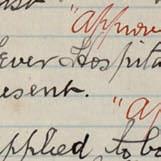 "approv
ever Hospita
esent.
"ap
pplied to be